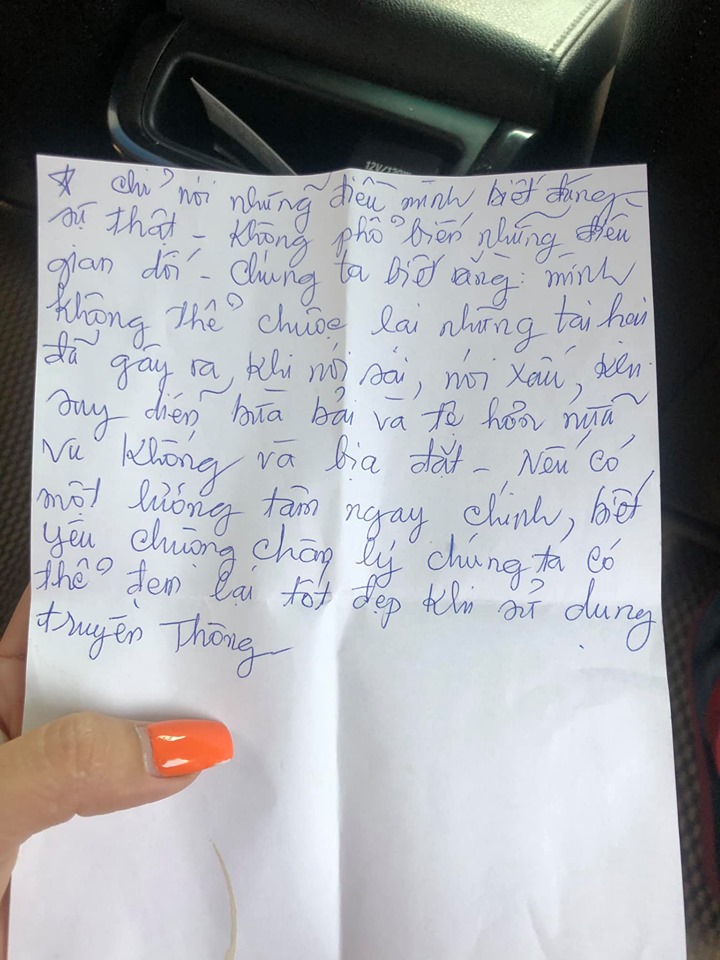 12V/120W
☆ chỉ nói những điều mình biết đúng -
sự thật - không phổ biến những điều
gian dối - chúng ta biết rằng: mình
không thể chuộc lại những tai hại
đã gây ra, khi nói sai, nói xấu,
suy diễn bừa bãi và tệ hơn nữa
vu khống và bịa đặt - Nếu có
một lương tâm ngay chính, biết
yêu chuộng chân lý chúng ta có
thể đem lại tốt đẹp khi sử dụng
truyền Thông -